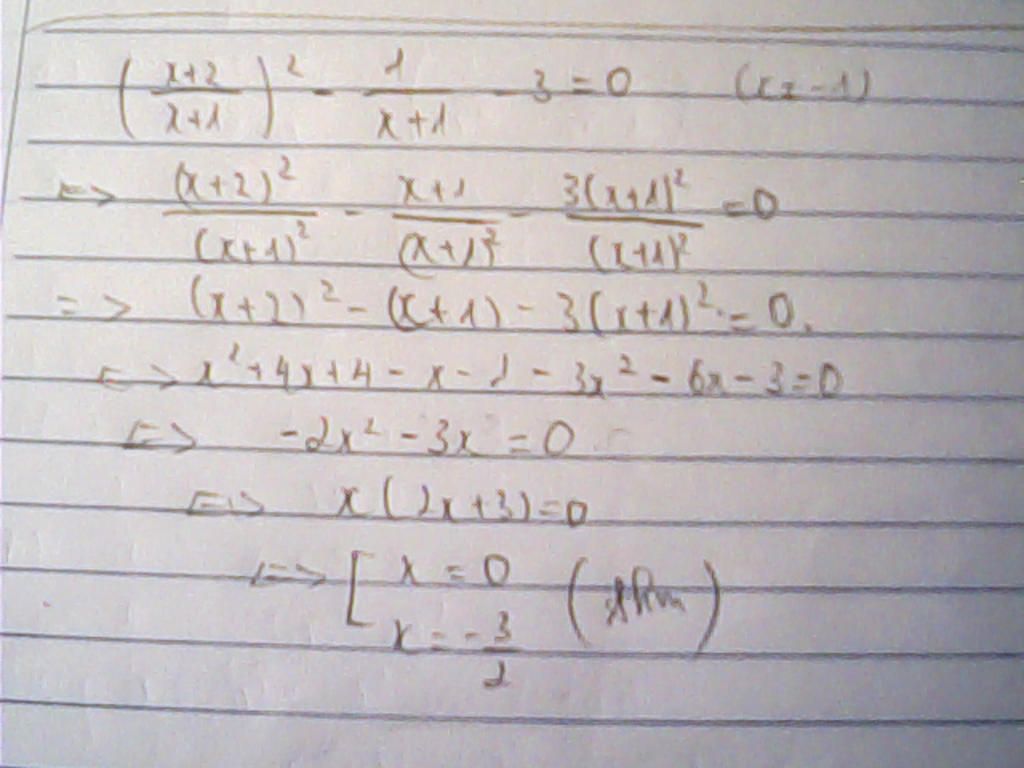 (x+2/x+1)² - 1/x+1 - 3 = 0 (x≠-1)
<=> (x+2)²/(x+1)² - x+1/(x+1)² - 3(x+1)²/(x+1)² = 0
=> (x+2)² - (x+1) - 3(x+1)² = 0.
<=> x²+4x+4 - x - 1 - 3x² - 6x - 3 = 0
<=> -2x² - 3x = 0
<=> x(2x+3)=0
<=> [ x = 0
x = -3/2